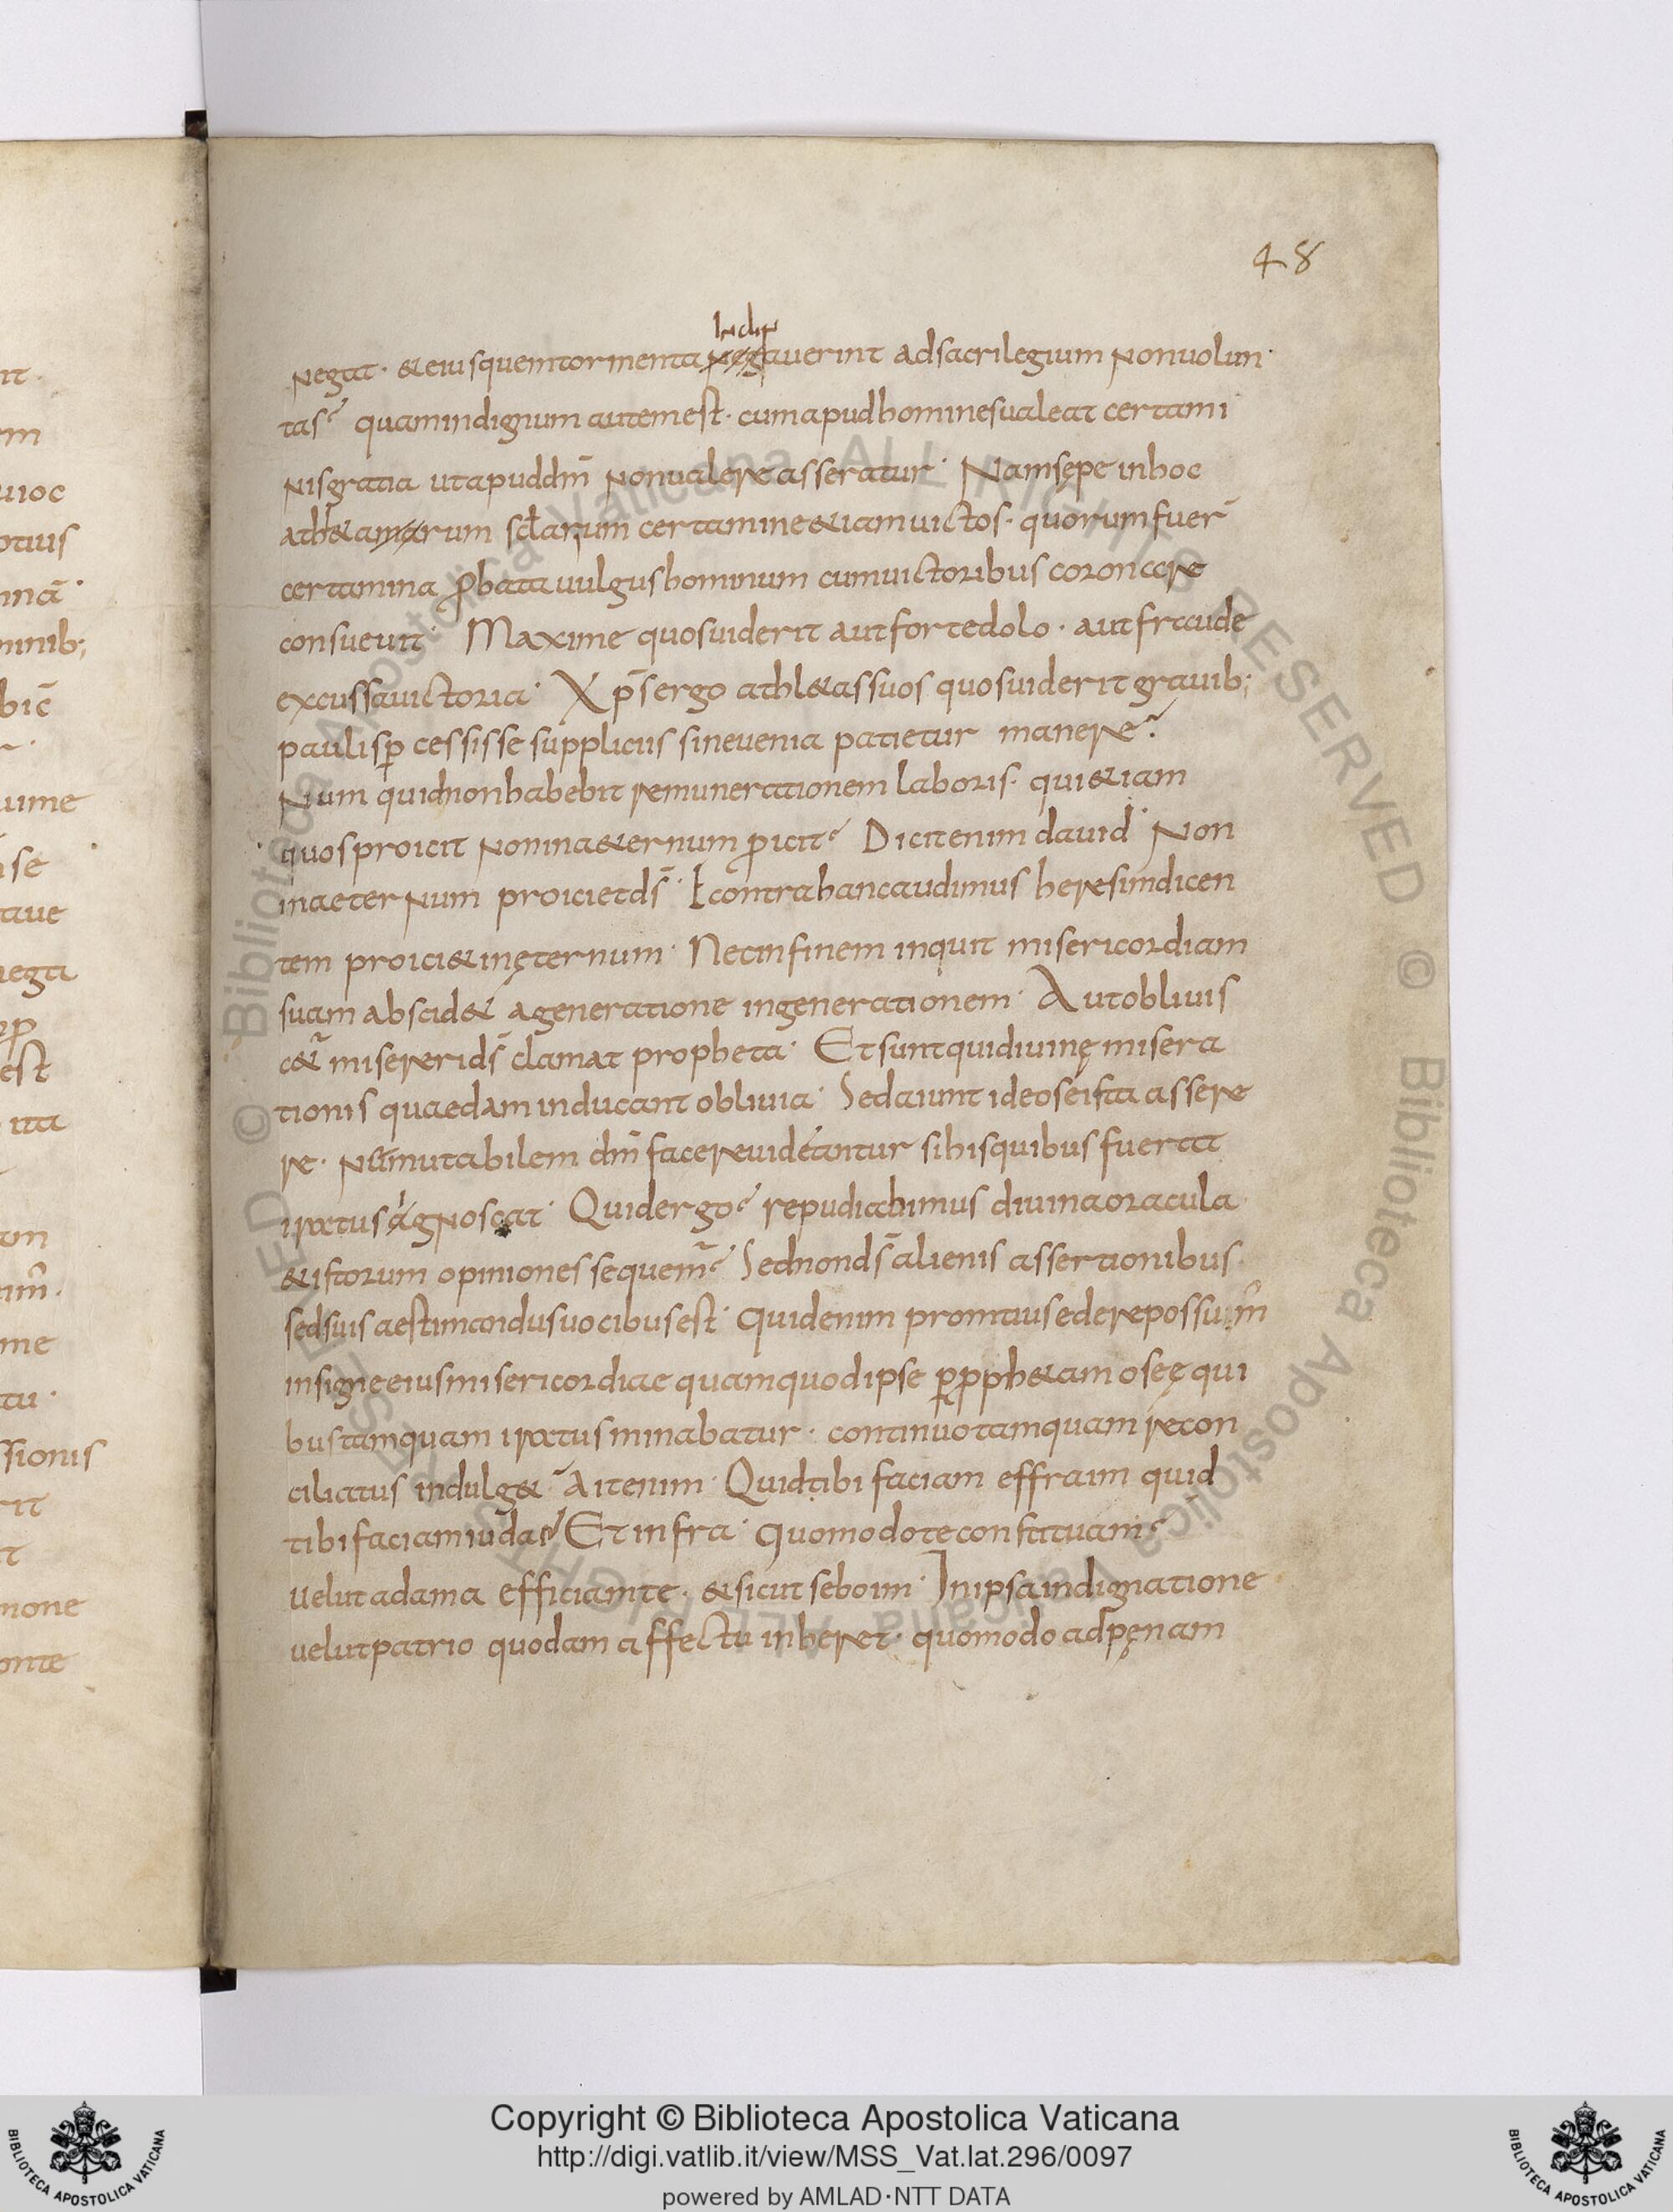 48
Indin
negat · & eiusquem tormenta negauerint ad sacrilegium non uolun·
tas? quam indignum autem est · cum apud homines ualeat certami
nis gratia ut apud dm̄ non ualere asseratur · Nam sępe in hoc
athl&amarum scłarum certamine &iam uictos · quorum fuer̄
certamina ꝓbata uulgus hominum cum uictoribus coronare
consueuit · Maxime quos uiderit aut forte dolo · aut fraude
excussa uictoria · Xp̄s ergo athl&as suos quos uiderit grauib;
paulisꝑ cessisse suppliciis sine uenia patietur manere?
Num quid non habebit remunerationem laboris · qui &iam
quos proicit non in a&ernum ꝓicit? Dicit enim dauid · Non
in aeternum proiciet ds̄ · & contra hanc audimus heresim dicen
tem proici & in ęternum · Nec in finem inquit misericordiam
suam abscid& a generatione in generationem · Aut obliuis
c&ur misereri ds̄ clamat propheta · Et sunt qui diuinę misera
tionis quaedam inducant obliuia · Sed aiunt ideo se ista assere
re · ne mutabilem dm̄ facere uideantur si his quibus fuerat
iratus agnoscat · Quid ergo? repudiabimus diuina oracula
& istorum opiniones sequem̄? Sed non ds̄ alienis assertionibus
sed suis aestimandus uocibus est · Quid enim promtius edere possum̄
insigne eius misericordiae quam quod ipse ꝑ ꝓph&am oseę qui
bus tamquam iratus minabatur · continuo tamquam recon
ciliatus indulg& · Ait enim · Quid tibi faciam effraim quid
tibi faciam iuda? Et infra · Quomodo te constituam?
Uelut adama efficiam te · & sicut seboim · In ipsa indignatione
uelut patrio quodam affectu inheret · quomodo ad pęnam
Copyright © Biblioteca Apostolica Vaticana
http://digi.vatlib.it/view/MSS_Vat.lat.296/0097
powered by AMLAD·NTT DATA
BIBLIOTECA APOSTOLICA VATICANA
BIBLIOTECA APOSTOLICA VATICANA